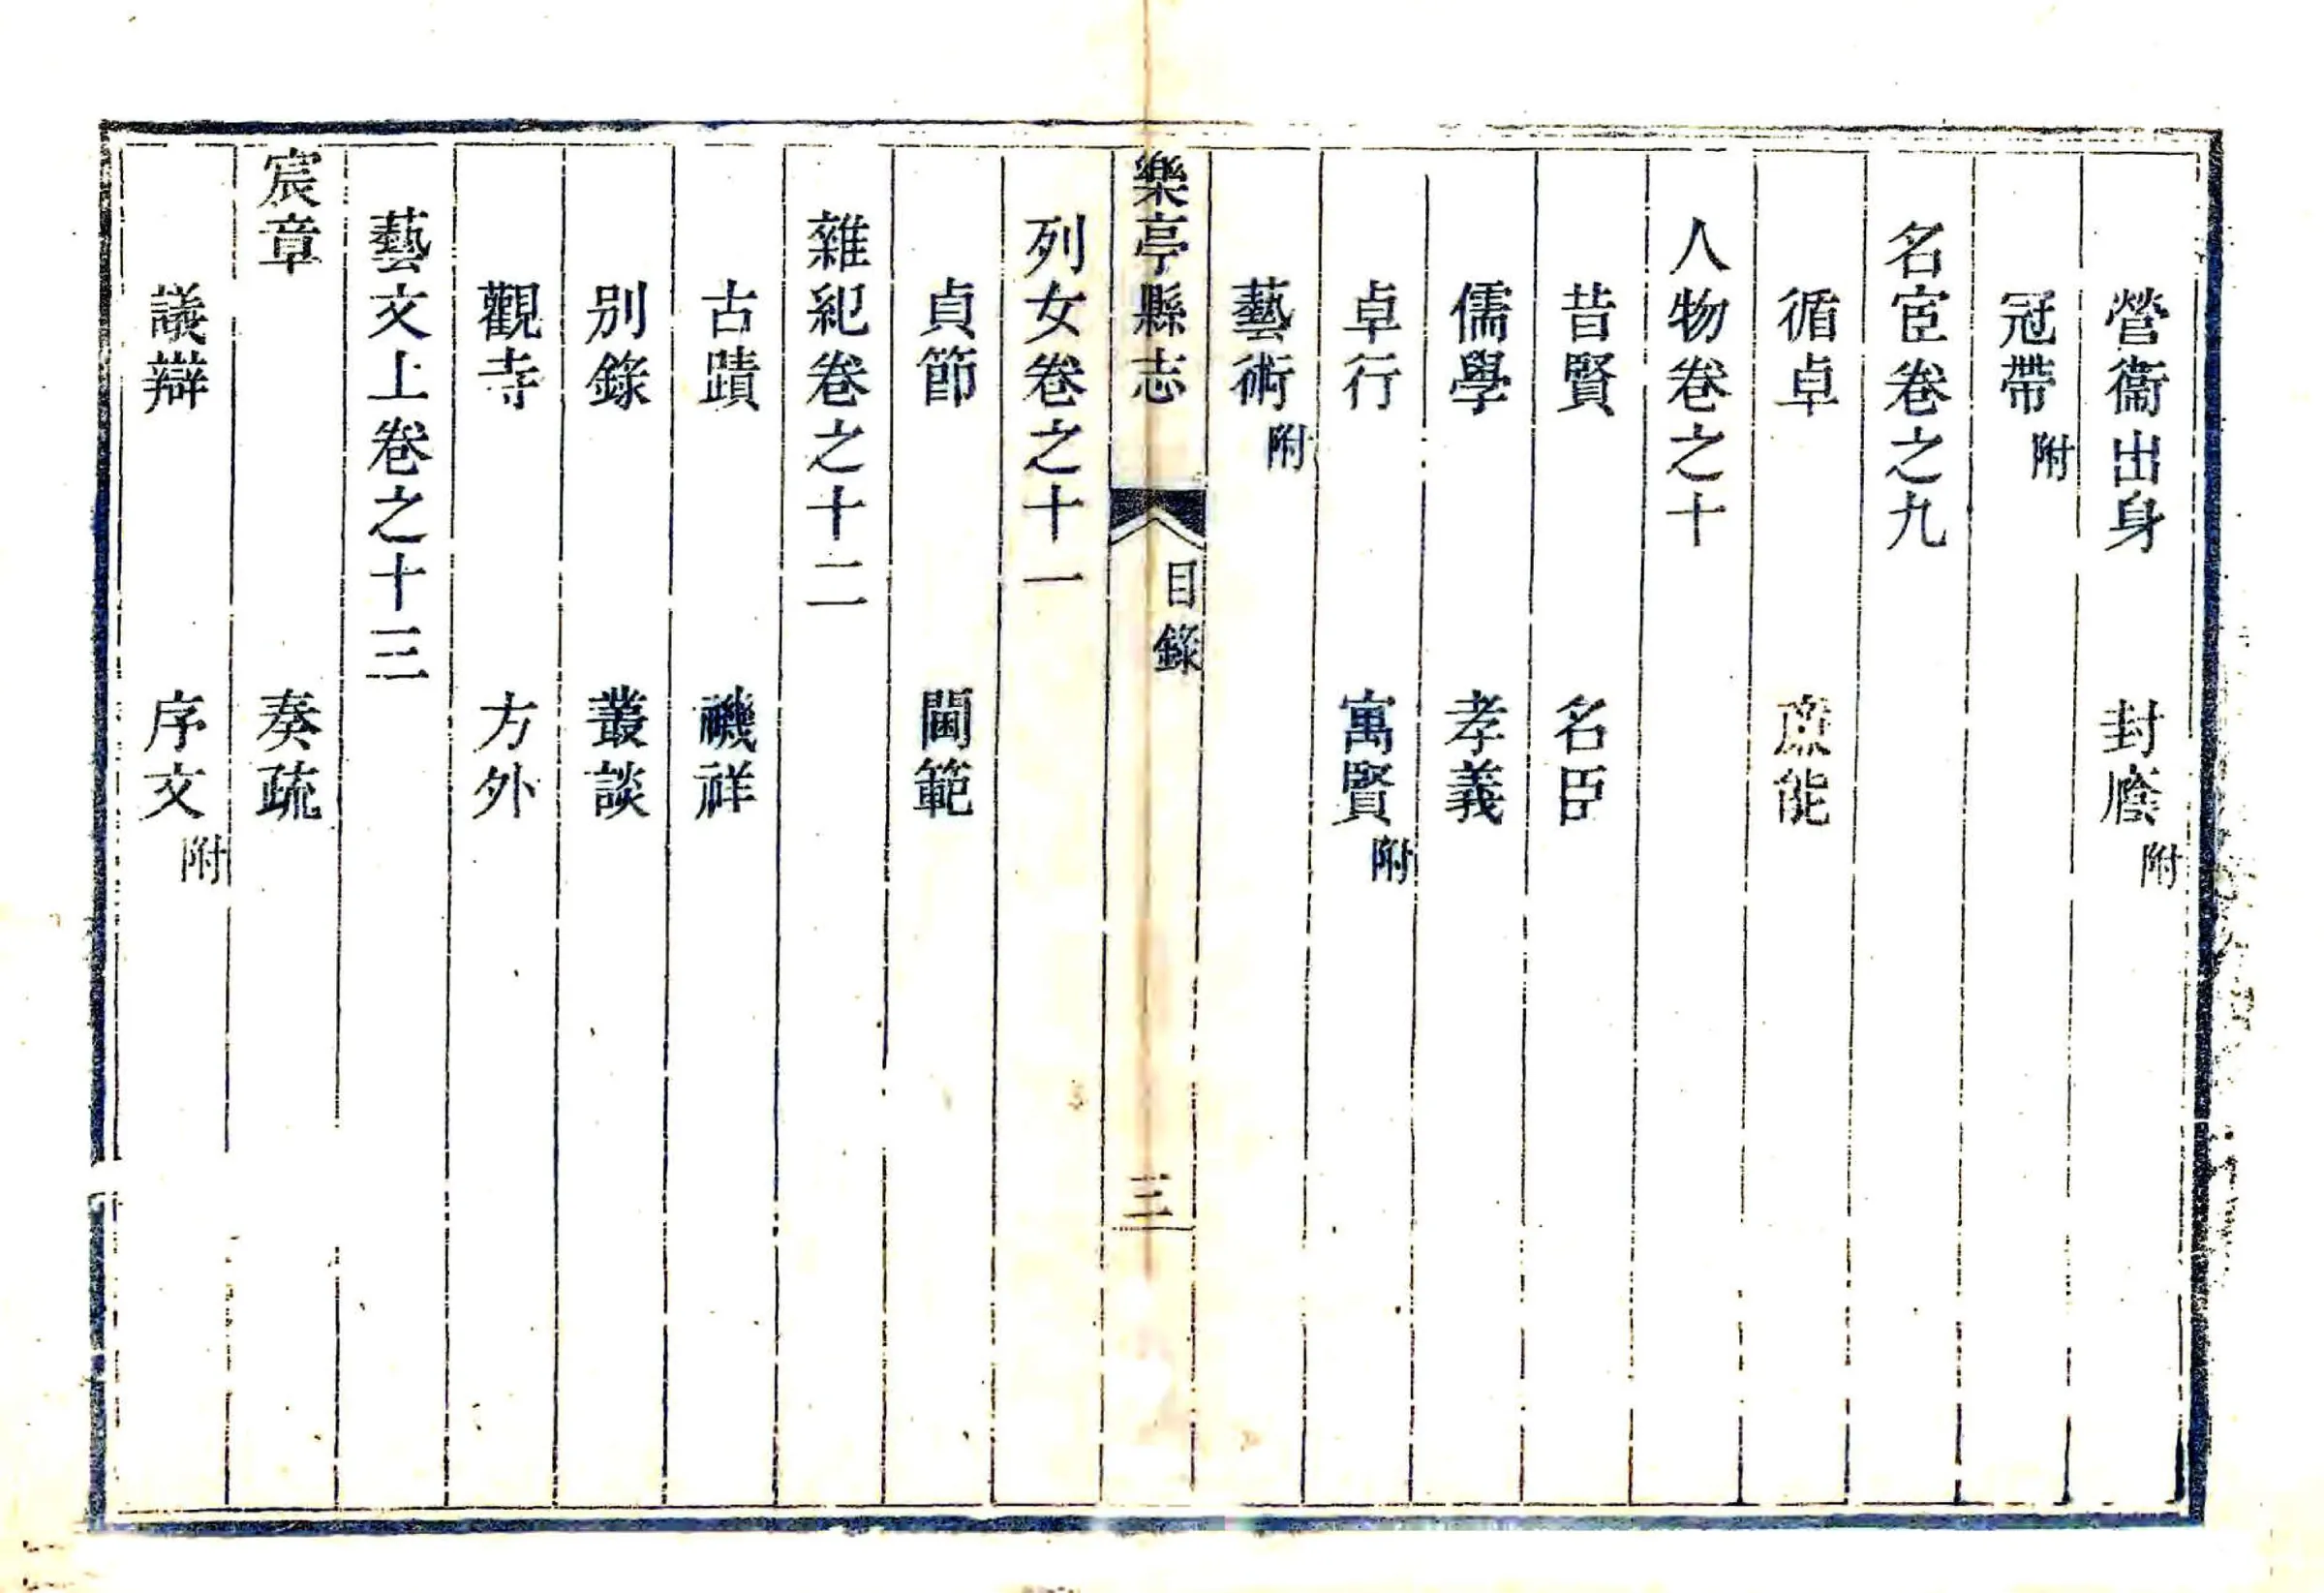 營衞出身　封廕附
冠帶附
名宦卷之九
循卓　廉能
人物卷之十
昔賢　名臣
儒學　孝義
卓行　寓賢附
藝術附
樂亭縣志　目錄　三
列女卷之十一
貞節　閫範
雜紀卷之十二
古蹟　禨祥
別錄　叢談
觀寺　方外
藝文上卷之十三
宸章　奏疏
議辯　序文附